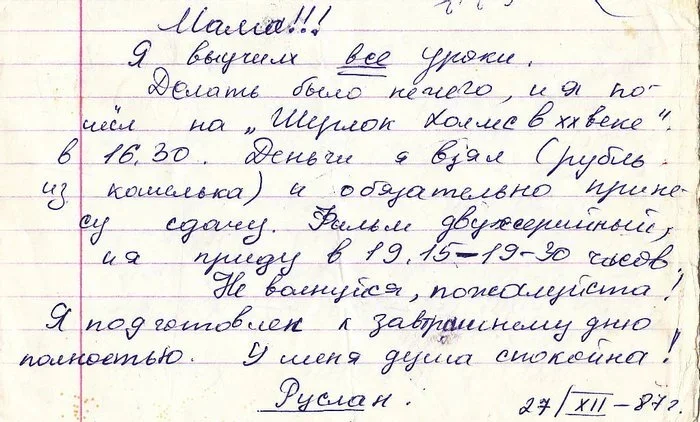 Мама!!!
Я выучил все уроки.
Делать было нечего, и я по-
шёл на „Шерлок Холмс в XX веке".
в 16.30. Деньги я взял (рубль
из кошелька) и обязательно прине-
су сдачу. Фильм двухсерийный,
и я приду в 19.15–19-30 часов.
Не волнуйся, пожалуйста!
Я подготовлен к завтрашнему дню
полностью. У меня душа спокойна!
Руслан.
27/XII – 87 г.